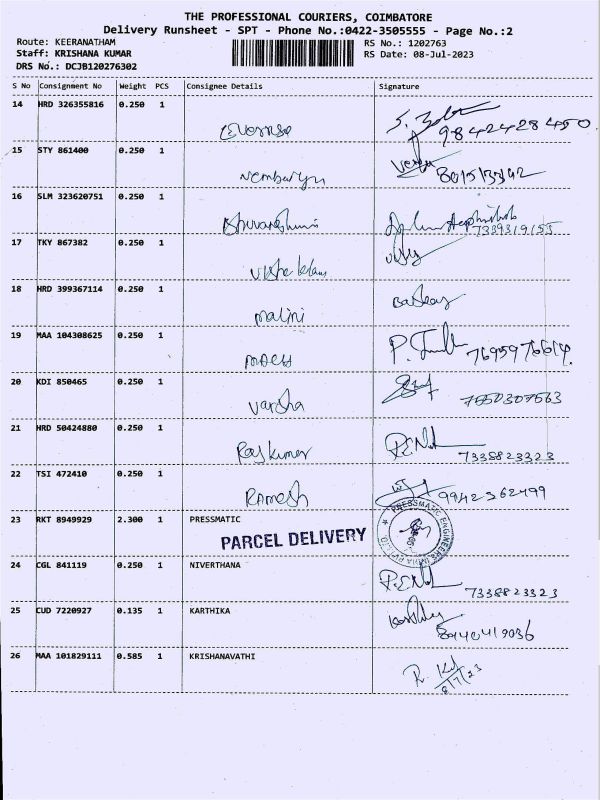 THE PROFESSIONAL COURIERS, COIMBATORE
Delivery Runsheet - SPT - Phone No.:0422-3505555 - Page No.:2
Route: KEERANATHAM
RS No.: 1202763
Staff: KRISHANA KUMAR
RS Date: 08-Jul-2023
DRS No.: DCJB120276302
S No Consignment No Weight PCS Consignee Details Signature
14 HRD 326355816 0.250 1
9842428450
15 STY 861400 0.250 1
16 SLM 323620751 0.250 1
7339319155
17 TKY 867382 0.250 1
18 HRD 399367114 0.250 1 malini
19 MAA 104308625 0.250 1
7695976614
20 KDI 850465 0.250 1 varsha
7550307563
21 HRD 50424880 0.250 1 Rajkumar
7338823323
22 TSI 472410 0.250 1 RAMESh
9942362499
23 RKT 8949929 2.300 1 PRESSMATIC
PARCEL DELIVERY
PRESSMATIC ENGINEERS INDIA PVT LTD
24 CGL 841119 0.250 1 NIVERTHANA
7338823323
25 CUD 7220927 0.135 1 KARTHIKA
8940419036
26 MAA 101829111 0.585 1 KRISHANAVATHI
8/7/23